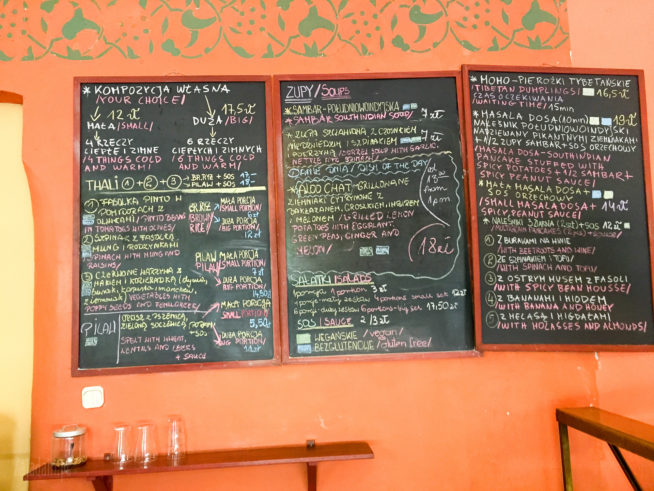 * KOMPOZYCJA WŁASNA
/YOUR CHOICE/
12 zł
17,5 zł
MAŁA /SMALL/
DUŻA /BIG/
4 RZECZY
CIEPŁE I ZIMNE
/4 THINGS COLD
AND WARM/
6 RZECZY
CIEPŁYCH I ZIMNYCH
/6 THINGS COLD
AND WARM/
THALI 1 + 2 + 3
+ PILAW + SOS
1 FASOLKA PINTO W
POMIDORACH Z
OLIWKAMI / PINTO BEANS
IN TOMATOES WITH OLIVES/
2 SZPINAK Z FASOLĄ
MUNG I RODZYNKAMI
SPINACH WITH MUNG AND
RAISINS/
3 CZERWONE WARZYWA Z
MAKIEM I
/VEGETABLES WITH
POPPY SEEDS AND
BR. RYŻ
/BROWN
RICE/
MAŁA PORCJA
/SMALL PORTION/
DUŻA PORCJA
/BIG PORTION/
PILAW
MAŁA PORCJA
/SMALL PORTION/
DUŻA PORCJA
/BIG PORTION/
PILAW
Z PSZENICĄ,
ZIELONĄ SOCZEWICĄ
+ SOS
SPELT WITH WHEAT,
LENTILS AND
+ SAUCE
MAŁA PORCJA
/SMALL PORTION/
5,50 zł
DUŻA PORCJA
/BIG PORTION/
11 zł
ZUPY / SOUPS
* SAMBAR - POŁUDNIOWOINDYJSKA
* SAMBAR SOUTH INDIAN SOUP/
7 zł
+ ZUPA SZCZAWIOWA Z CZOSNKIEM
NIEDŹWIEDZIM
I POKRZYWĄ / SORREL SOUP WITH GARLIC,
7 zł
DANIE DNIA / DISH OF THE DAY
* ALOO CHAT - GRILLOWANE
ZIEMNIAKI CYTRYNOWE Z
BAKŁAŻANEM, GROSZKIEM, IMBIREM
I MELONEM / GRILLED LEMON
POTATOES WITH EGGPLANT,
GREEN PEAS, GINGER AND
MELON /
from
1 pm
18 zł
SAŁATKI / SALADS
3 zł
small set
12 zł
big set 17,50 zł
SOS / SAUCE 2/3 zł
WEGAŃSKIE / vegan /
BEZGLUTENOWE / gluten free/
* MOMO - PIEROŻKI TYBETAŃSKIE
/TIBETAN DUMPLINGS/ 16,5 zł
CZAS OCZEKIWANIA
/WAITING TIME/ 15min
* MASALA DOSA (10min) 19 zł
NALEŚNIK POŁUDNIOWOINDYJSKI
NADZIEWANY PIKANTNYMI ZIEMNIAKAMI
+ 1/2 ZUPY SAMBAR + SOS ORZECHOWY
/MASALA DOSA - SOUTHINDIAN
PANCAKE STUFFED WITH
SPICY POTATOES + 1/2 SAMBAR +
SPICY PEANUT SAUCE/
* MAŁA MASALA DOSA +
SOS ORZECHOWY
/SMALL MASALA DOSA + 14 zł
SPICY PEANUT SAUCE/
+ SOS 12 zł
1 Z BURAKAMI NA WINIE
/WITH BEETROOTS AND WINE/
2 ZE SZPINAKIEM I TOFU /
/WITH SPINACH AND TOFU/
3 Z OSTRYM MUSEM Z FASOLI
/WITH SPICY BEAN MOUSSE/
4 Z BANANAMI I MIODEM
/WITH BANANA AND HONEY
5 Z MELASĄ I MIGDAŁAMI
/WITH MOLASSES AND ALMONDS/